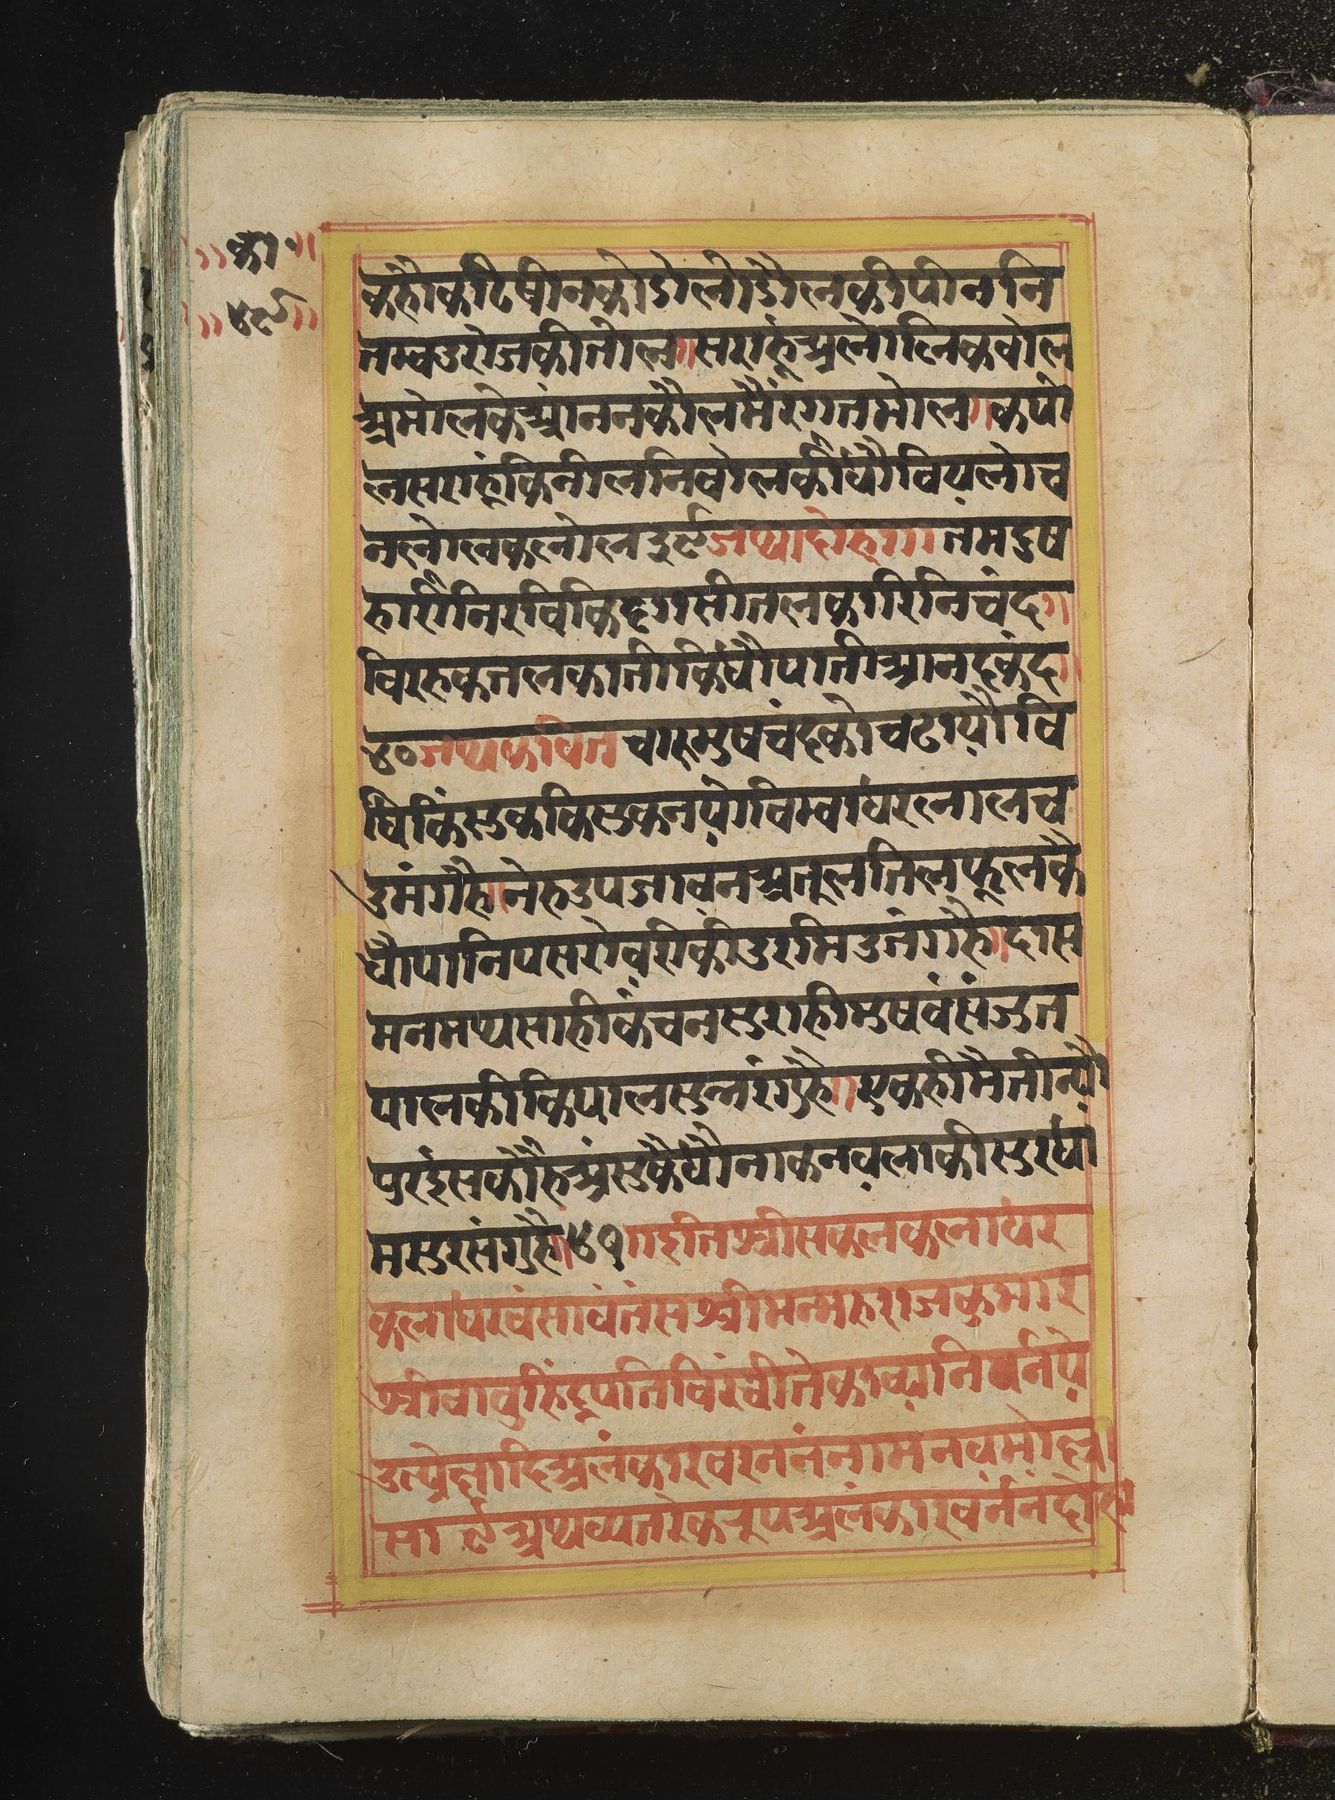 ॥का॥
॥४९॥
कहौकटिषीनकोडोलोडौलकीपीननि
तम्बउरोजकीतोल॥सराहूंअलोलिकवोल
अमोलकेआंननकौलमैंरंगतमोल॥कपो
लसराहूंकिनीलनिचोलकींधौवियलोच
नलोलकलोलउ३९जथादोहा॥तमदुष
हारिनिरविकिदृगसीतलकारिनिचंद॥
विरहकतलकातीकिधौंपातीआनदकंद॥
४०जथकवित चारुमुषचंदकोचढायौवि
धिकिंसुककिसुकनयोविम्वाधरलालच
उमंगहै॥नेहउपजावनअतूलतिलफूलकै
धौपानिपसरोवरीकीउरमिउतंगहै॥दास
मनमथसाहीकंचनसुराहीमुषवंसजुत
पालकीकिपालसुभरंगुहै॥एकहीमैतीन्यौ
पुरईसकौहैअंसुकैधौंनाकनवलाकीसुरधां
मसुरसंगुहै॥४१॥इतिश्रीसकलकलाधर
कलाधरवंसावंतंसश्रीमन्महाराजकुमार
श्रीवावुहिंदूपतिविरंचीतेकाव्यनिर्वनये
उत्प्रेक्षादिअलंकारवरननंनामनवमोल्ल
सा९अथव्यतरेकरूपअलंकारवर्ननंदोहा